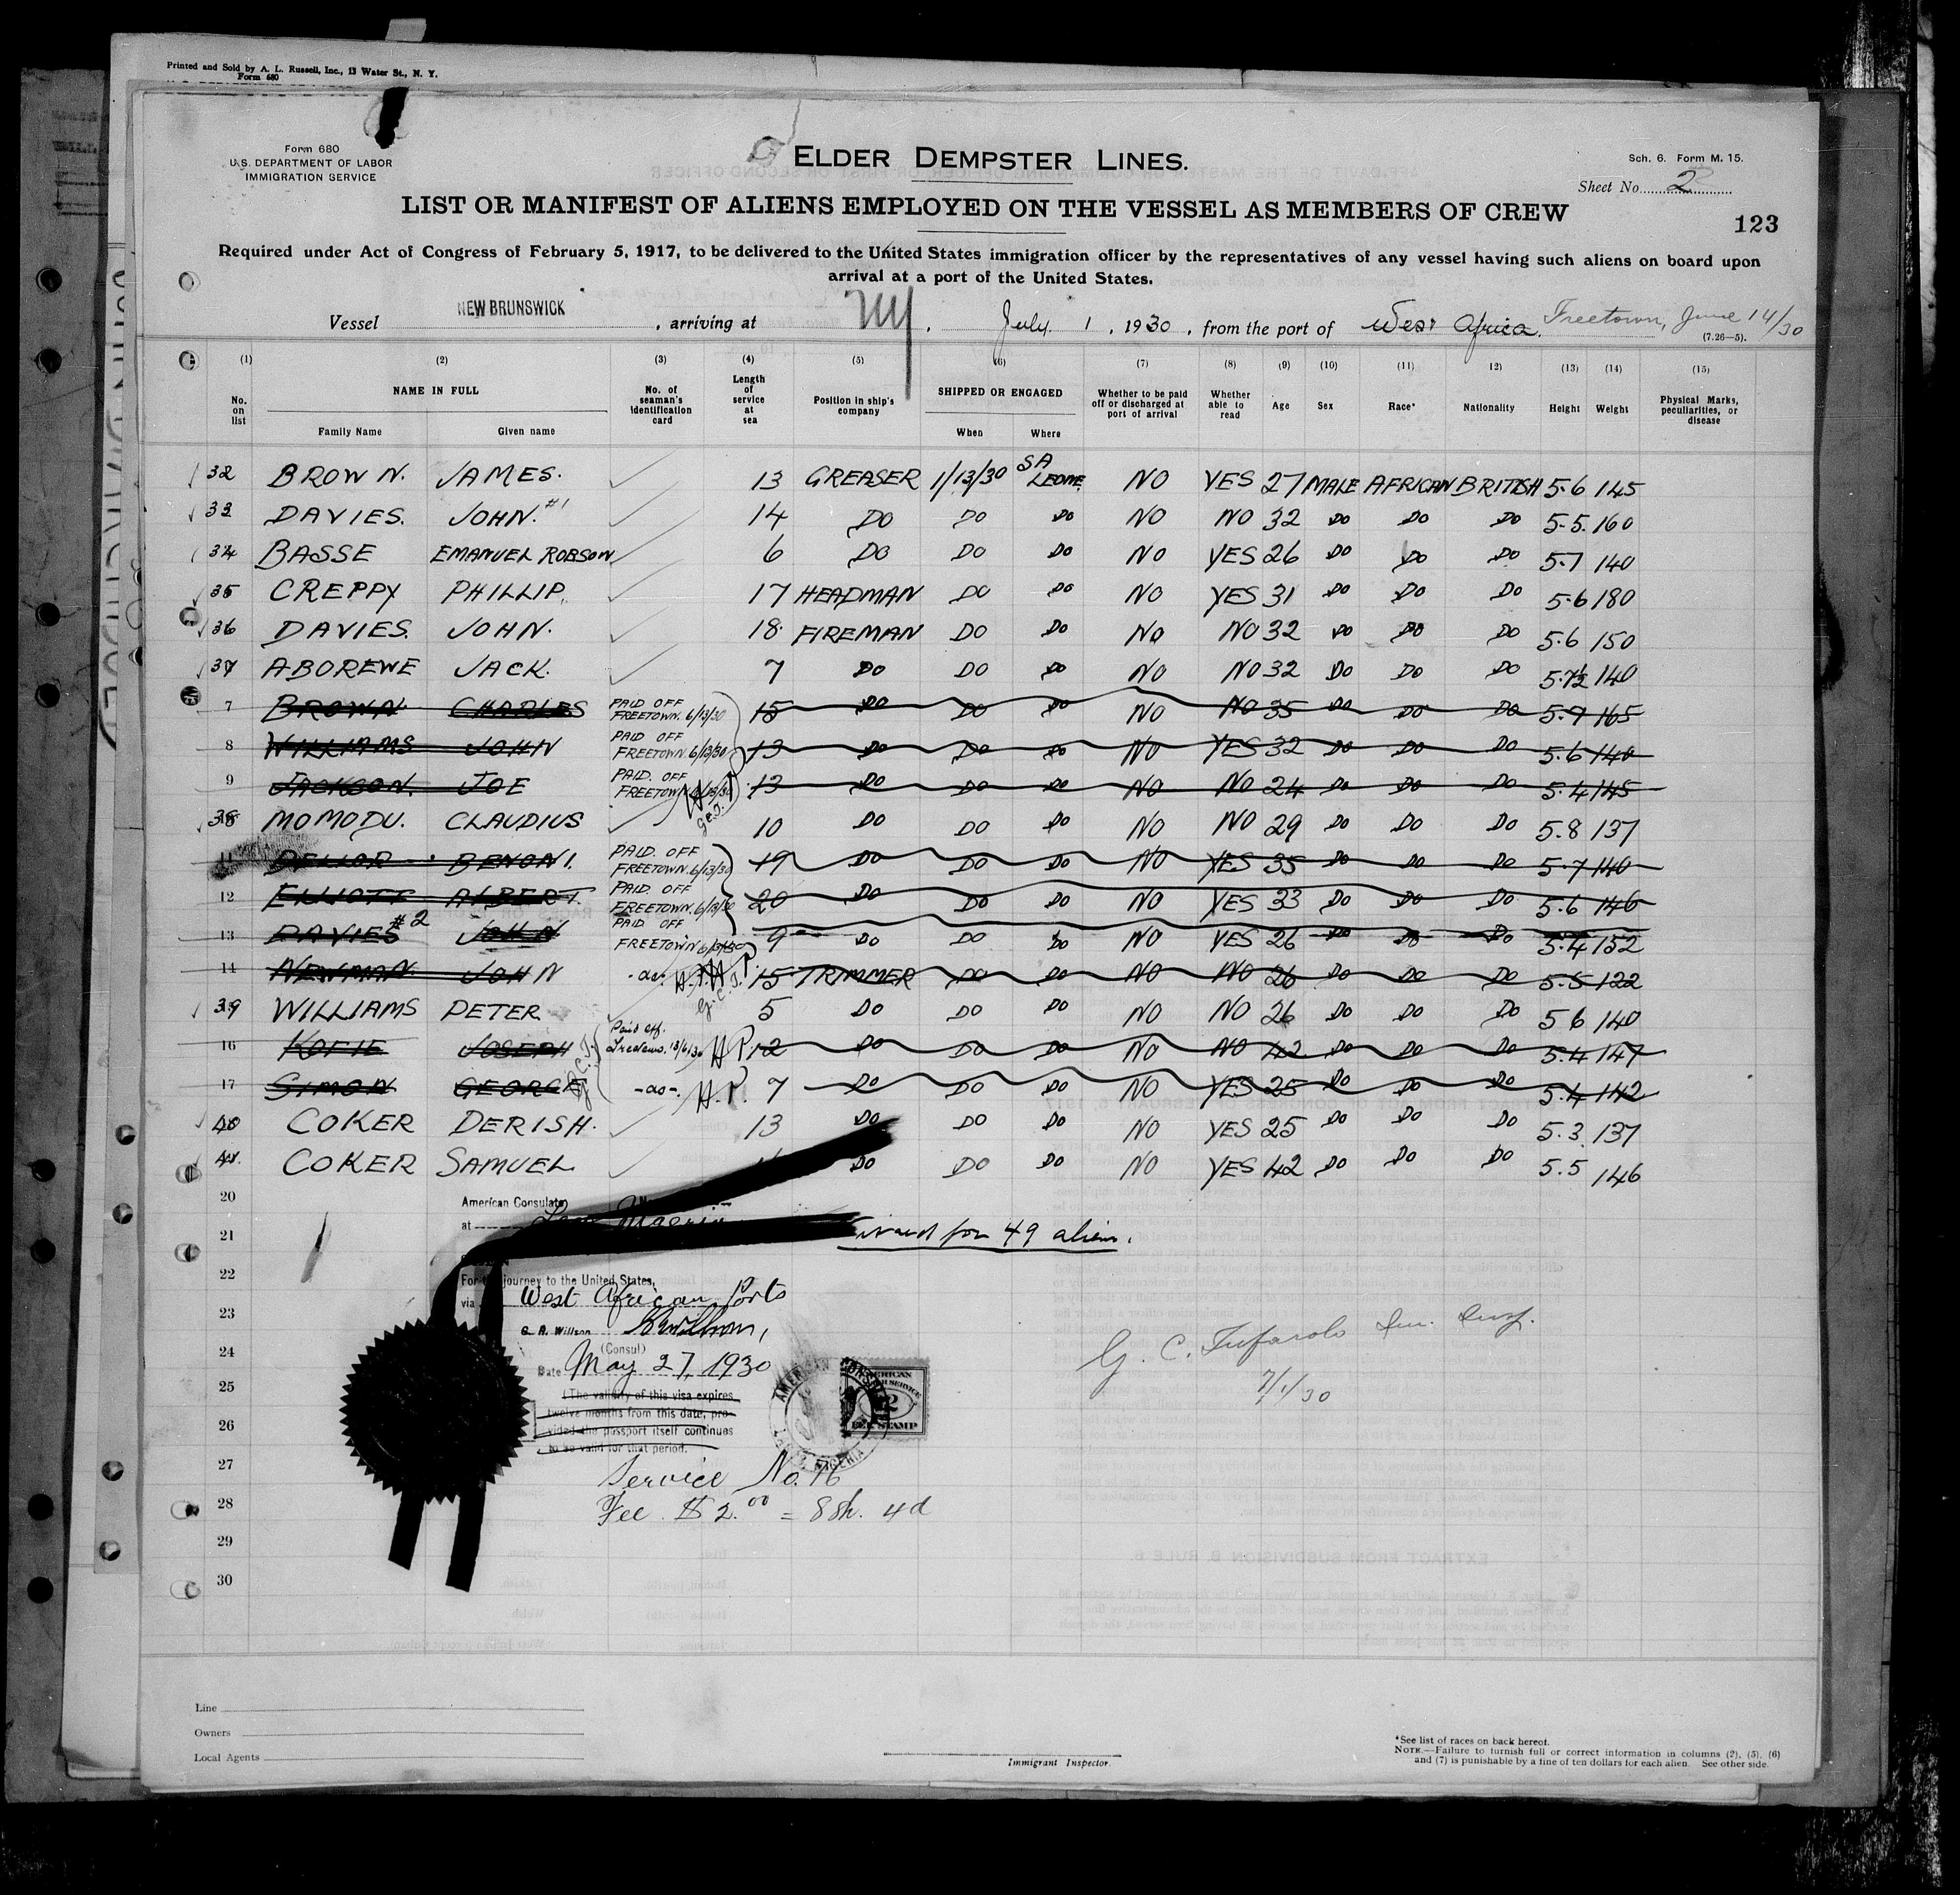 Printed and Sold by A. L. Russell, Inc., 13 Water St., N. Y.
Form 680
Form 680
U.S. DEPARTMENT OF LABOR
IMMIGRATION SERVICE
ELDER DEMPSTER LINES.
Sch. 6. Form M. 15.
Sheet No. 2
LIST OR MANIFEST OF ALIENS EMPLOYED ON THE VESSEL AS MEMBERS OF CREW
123
Required under Act of Congress of February 5, 1917, to be delivered to the United States immigration officer by the representatives of any vessel having such aliens on board upon
arrival at a port of the United States.
Vessel NEW BRUNSWICK, arriving at NY, July 1, 1930, from the port of West Africa. Freetown, June 14/30
(7.26—5).
(1) (2) (3) (4) (5) (6) (7) (8) (9) (10) (11) 12) (13) (14) (15)
No. on list NAME IN FULL Family Name Given name No. of seaman's identification card Length of service at sea Position in ship's company SHIPPED OR ENGAGED When Where Whether to be paid off or discharged at port of arrival Whether able to read Age Sex Race* Nationality Height Weight Physical Marks, peculiarities, or disease
32 BROWN. JAMES. 13 GREASER 1/13/30 SA LEONE NO YES 27 MALE AFRICAN BRITISH 5.6 145
33 DAVIES. JOHN. #1 14 DO DO DO NO NO 32 DO DO DO 5.5. 160
34 BASSE EMANUEL ROBSON 6 DO DO DO NO YES 26 DO DO DO 5.7 140
35 CREPPY PHILLIP. 17 HEADMAN DO DO NO YES 31 DO DO DO 5.6 180
36 DAVIES. JOHN. 18. FIREMAN DO DO NO NO 32 DO DO DO 5.6 150
37 ABOREWE JACK. 7 DO DO DO NO NO 32 DO DO DO 5.7½ 140
7 BROWN CHARLES PAID OFF FREETOWN. 6/13/30 15 DO DO DO NO NO 35 DO DO DO 5.9 165
8 WILLIAMS JOHN PAID OFF FREETOWN. 6/13/30 13 DO DO DO NO YES 32 DO DO DO 5.6 140
9 JACKSON. JOE PAID. OFF FREETOWN 6/13/30 13 DO DO DO NO NO 24 DO DO DO 5.4 145
38 MOMODU. CLAUDIUS 10 DO DO DO NO NO 29 DO DO DO 5.8 137
11 DELLOR BENONI. PAID. OFF FREETOWN. 6/13/30 19 DO DO DO NO YES 35 DO DO DO 5.7 140
12 ELLIOTT ALBERT. PAID. OFF FREETOWN. 6/13/30 20 DO DO DO NO YES 33 DO DO DO 5.6 146
13 DAVIES #2 JOHN PAID OFF FREETOWN 6/13/30 9 DO DO DO NO YES 26 DO DO DO 5.4 152
14 NEWMAN. JOHN -do- H.P. G.C.T. 15 TRIMMER DO DO NO NO 26 DO DO DO 5.5 122
39 WILLIAMS PETER 5 DO DO DO NO NO 26 DO DO DO 5 6 140
16 KOFIE JOSEPH Paid off. Freetown. 13/6/30 H.P. 12 DO DO DO NO NO 42 DO DO DO 5.4 147
17 SIMON GEORGE G.C.T. -do-. H.P. 7 DO DO DO NO YES 25 DO DO DO 5.4 142
40 COKER DERISH. 13 DO DO DO NO YES 25 DO DO DO 5.3. 137
41. COKER SAMUEL DO DO DO NO YES 42 DO DO DO 5.5 146
20
American Consulate
at Nigeria
21
issued for 49 aliens.
22
For the journey to the United States,
via West African Ports
23
G. R. Willson
(Consul)
24
Date May 27, 1930
G. C. Tufarolo Imm. Insp.
7/1/30
25
(The validity of this visa expires
twelve months from this date, pro-
vided the passport itself continues
to be valid for that period.
26
AMERICAN CONSULATE
LAGOS, NIGERIA
AMERICAN
SERVICE
2
FEE STAMP
27
Service No. 76
28
Fee $2.00 = 8sh. 4d
29
30
Line
Owners
Local Agents
Immigrant Inspector.
*See list of races on back hereof.
NOTE.—Failure to furnish full or correct information in columns (2), (5), (6)
and (7) is punishable by a fine of ten dollars for each alien. See other side.